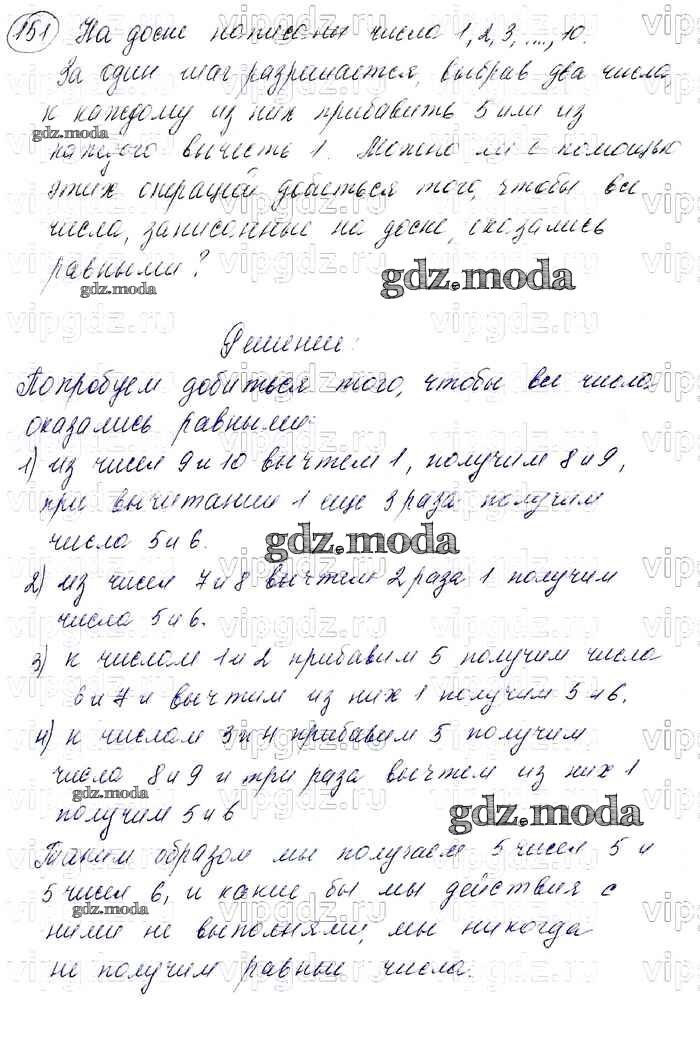 151 На доске написаны числа 1, 2, 3, ..., 10.
За один шаг разрешается, выбрав два числа,
к каждому из них прибавить 5 или из
каждого вычесть 1. Можно ли с помощью
этих операций добиться того, чтобы все
числа, записанные на доске, оказались
равными?
gdz.moda
Решение:
Попробуем добиться того, чтобы все числа
оказались равными:
1) из чисел 9 и 10 вычтем 1, получим 8 и 9,
при вычитании 1 еще 3 раза получим
числа 5 и 6.
gdz.moda
2) из чисел 7 и 8 вычтем 2 раза 1 получим
числа 5 и 6.
3) к числам 1 и 2 прибавим 5 получим числа
6 и 7 и вычтим из них 1 получим 5 и 6.
4) к числам 3 и 4 прибавим 5 получим
числа 8 и 9 и три раза вычтем из них 1
получим 5 и 6
gdz.moda
Таким образом мы получаем 5 чисел 5 и
5 чисел 6, и какие бы мы действия с
gdz.moda
ними не выполняли, мы никогда
не получим равные числа.